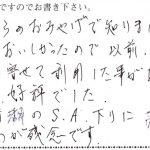 ですのでお書き下さい。
らのおみやげで知りま
おいしかったので以前
寄せて利用した事が
好評でした。
のS.A.下りに
が残念です。